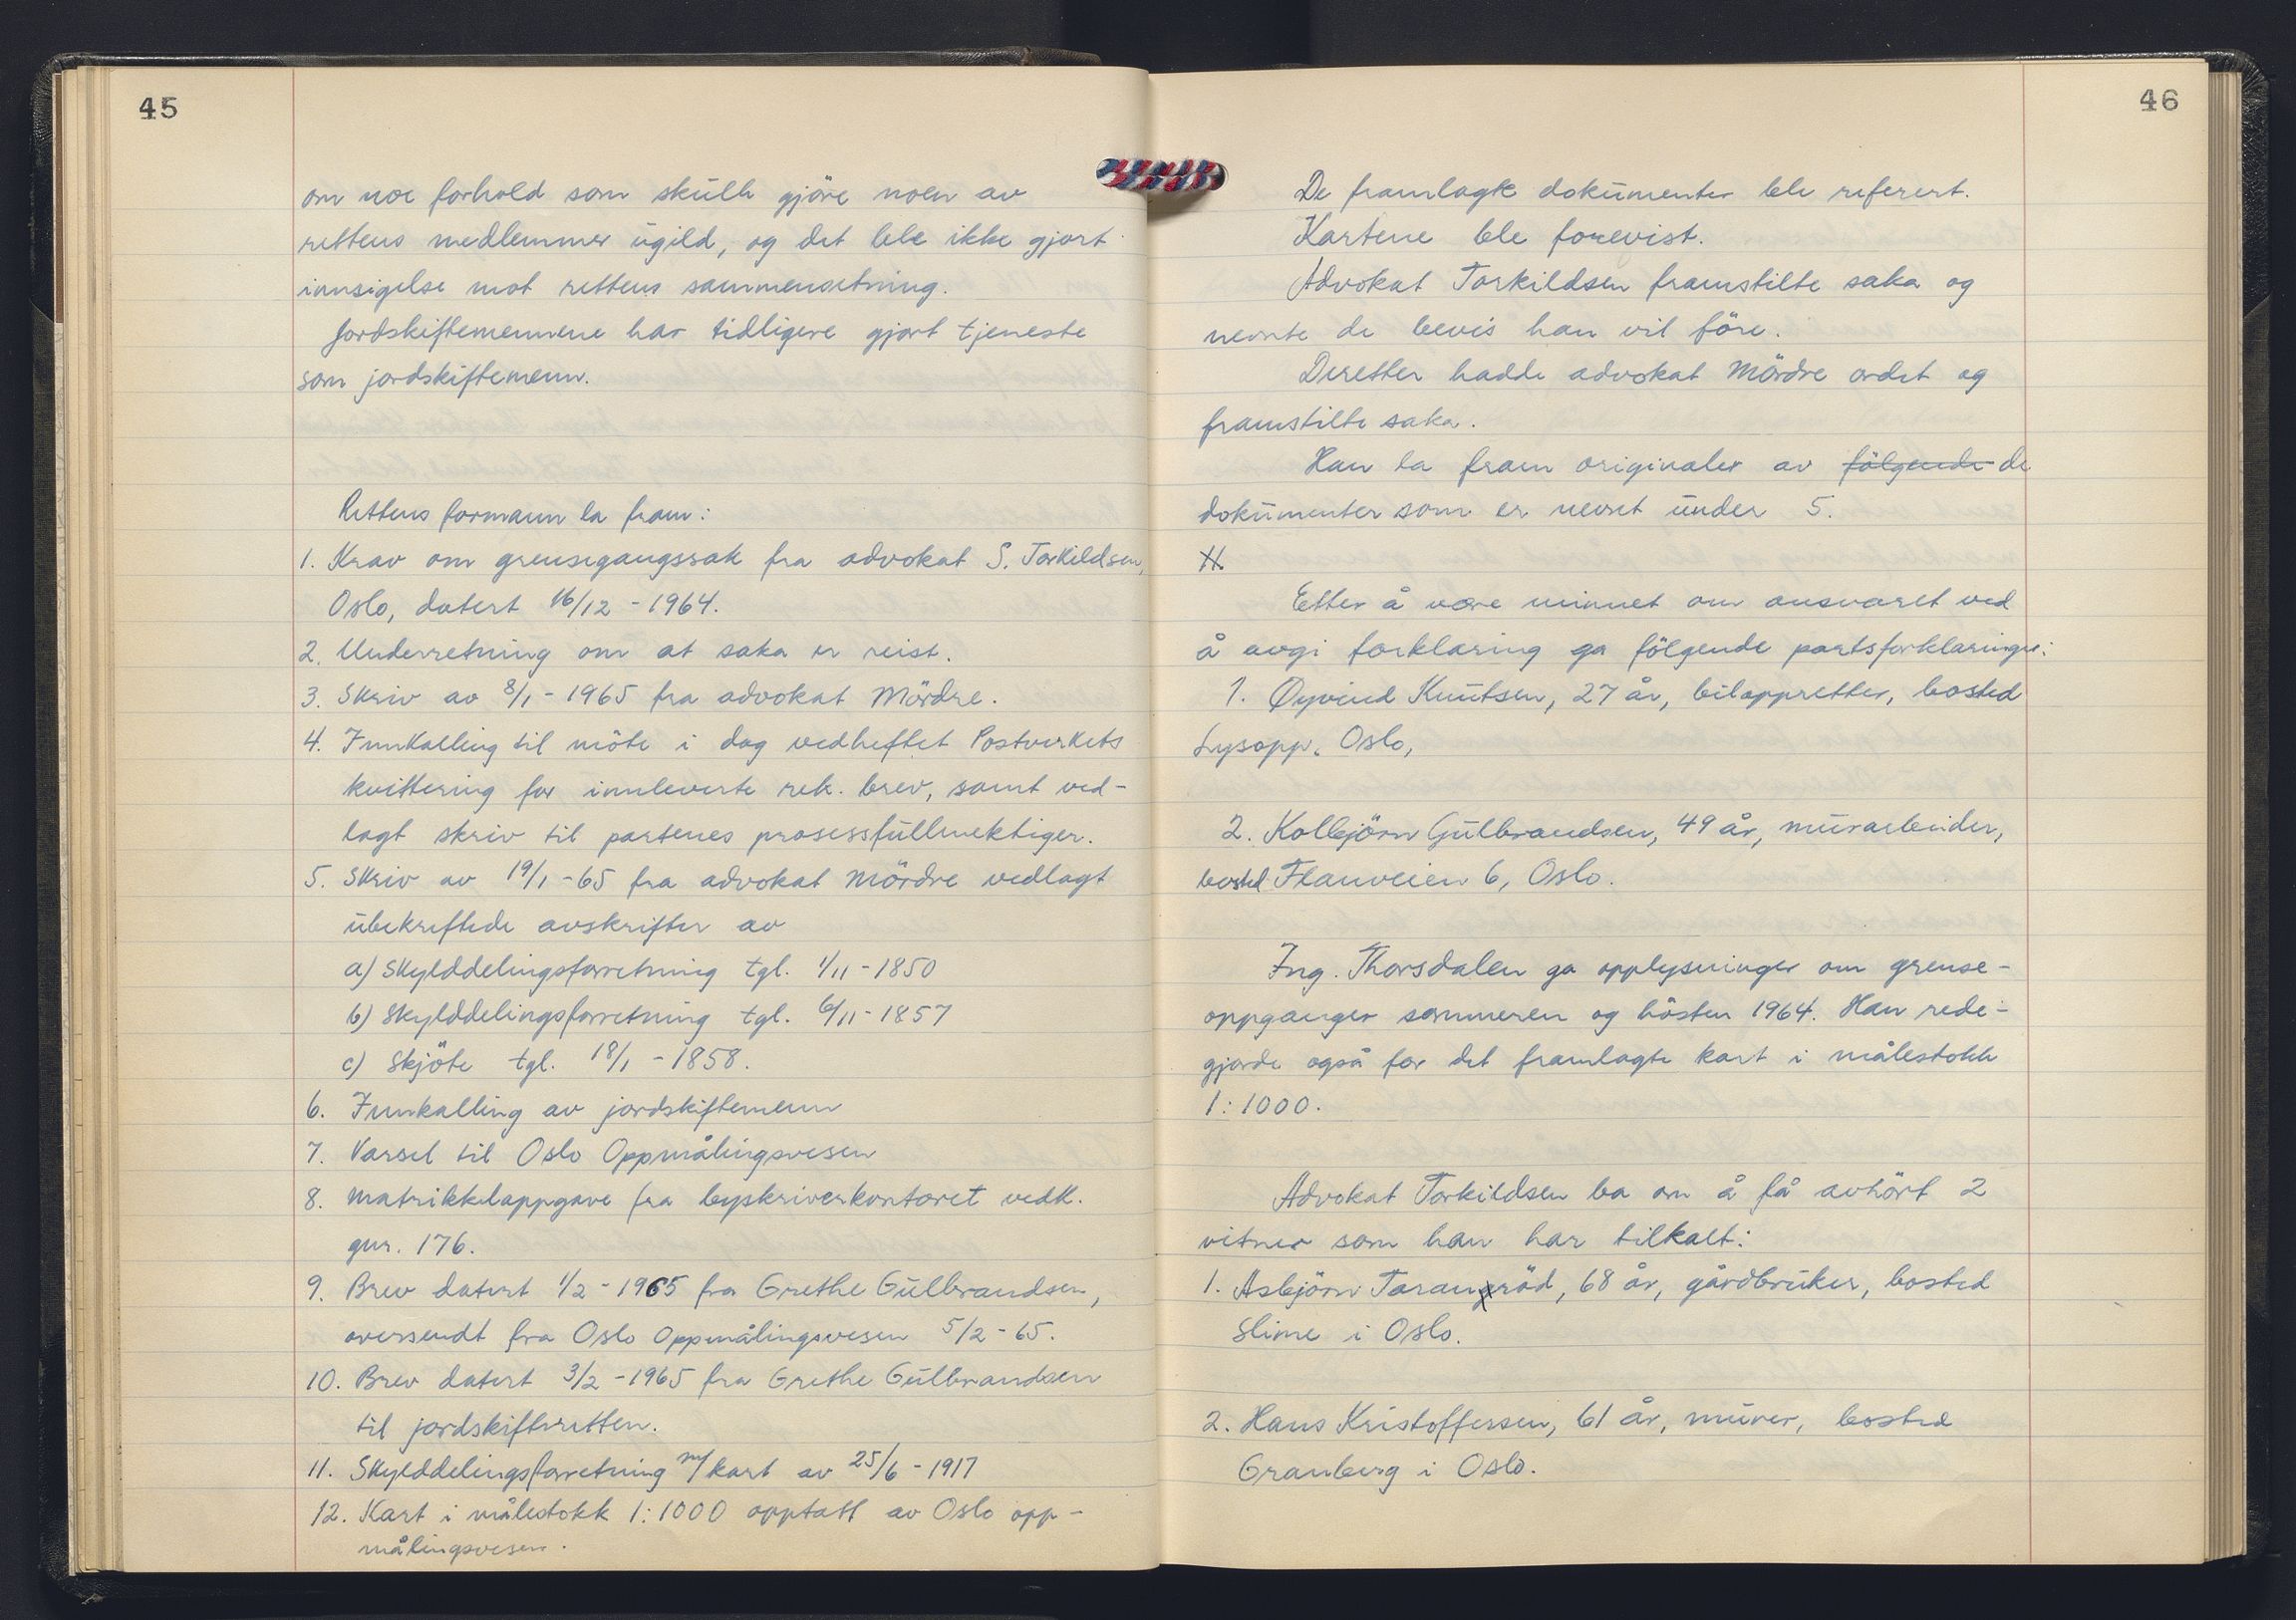 45
om noe forhold som skulle gjöre noen av
rettens medlemmer ugild, og det ble ikke gjort
innsigelse mot rettens sammensetning.
Jordskiftemennene har tidligere gjort tjeneste
som jordskiftemenn.
Rettens formann la fram:
1. Krav om grensegangssak fra advokat S. Torkildsen,
Oslo, datert 16/12 - 1964.
2. Underretning om at saka er reist.
3. Skriv av 8/1 - 1965 fra advokat Mördre.
4. Innkalling til möte i dag vedheftet Postverkets
kvittering for innleverte rek. brev, samt ved-
lagt skriv til partenes prosessfullmektiger.
5. Skriv av 19/1 - 65 fra advokat Mördre vedlagt
ubekreftede avskrifter av
a) Skylddelingsforretning tgl. 1/11 - 1850
b) Skylddelingsforretning tgl. 6/11 - 1857
c) Skjöte tgl. 18/1 - 1858.
6. Innkalling av jordskiftemenn
7. Varsel til Oslo Oppmålingsvesen
8. Matrikkeloppgave fra byskriverkontoret vedk.
gnr. 176.
9. Brev datert 1/2 - 1965 fra Grethe Gulbrandsen,
oversendt fra Oslo Oppmålingsvesen 5/2 - 65.
10. Brev datert 3/2 - 1965 fra Grethe Gulbrandsen
til jordskifteretten.
11. Skylddelingsforretning m/kart av 25/6 - 1917
12. Kart i målestokk 1:1000 opptatt av Oslo opp-
målingsvesen.
46
De framlagte dokumenter ble referert.
Kartene ble forevist.
Advokat Torkildsen framstilte saka og
nevnte de bevis han vil före.
Deretter hadde advokat Mördre ordet og
framstilte saka.
Han la fram originaler av fölgende de
dokumenter som er nevnt under 5.
Etter å være minnet om ansvaret ved
å avgi forklaring ga fölgende partsforklaringer:
1. Øyvind Knutsen, 27 år, biloppretter, bosted
Lysopp, Oslo,
2. Kolbjörn Gulbrandsen, 49 år, murarbeider,
bosted Flauveien 6, Oslo.
Ing. Thorsdalen ga opplysninger om grense-
oppganger sommeren og hösten 1964. Han rede-
gjorde også for det framlagte kart i målestokk
1:1000.
Advokat Torkildsen ba om å få avhört 2
vitner som han har tilkalt:
1. Asbjörn Tarangröd, 68 år, gårdbruker, bosted
Slime i Oslo.
2. Hans Kristoffersen, 61 år, murer, bosted
Granberg i Oslo.